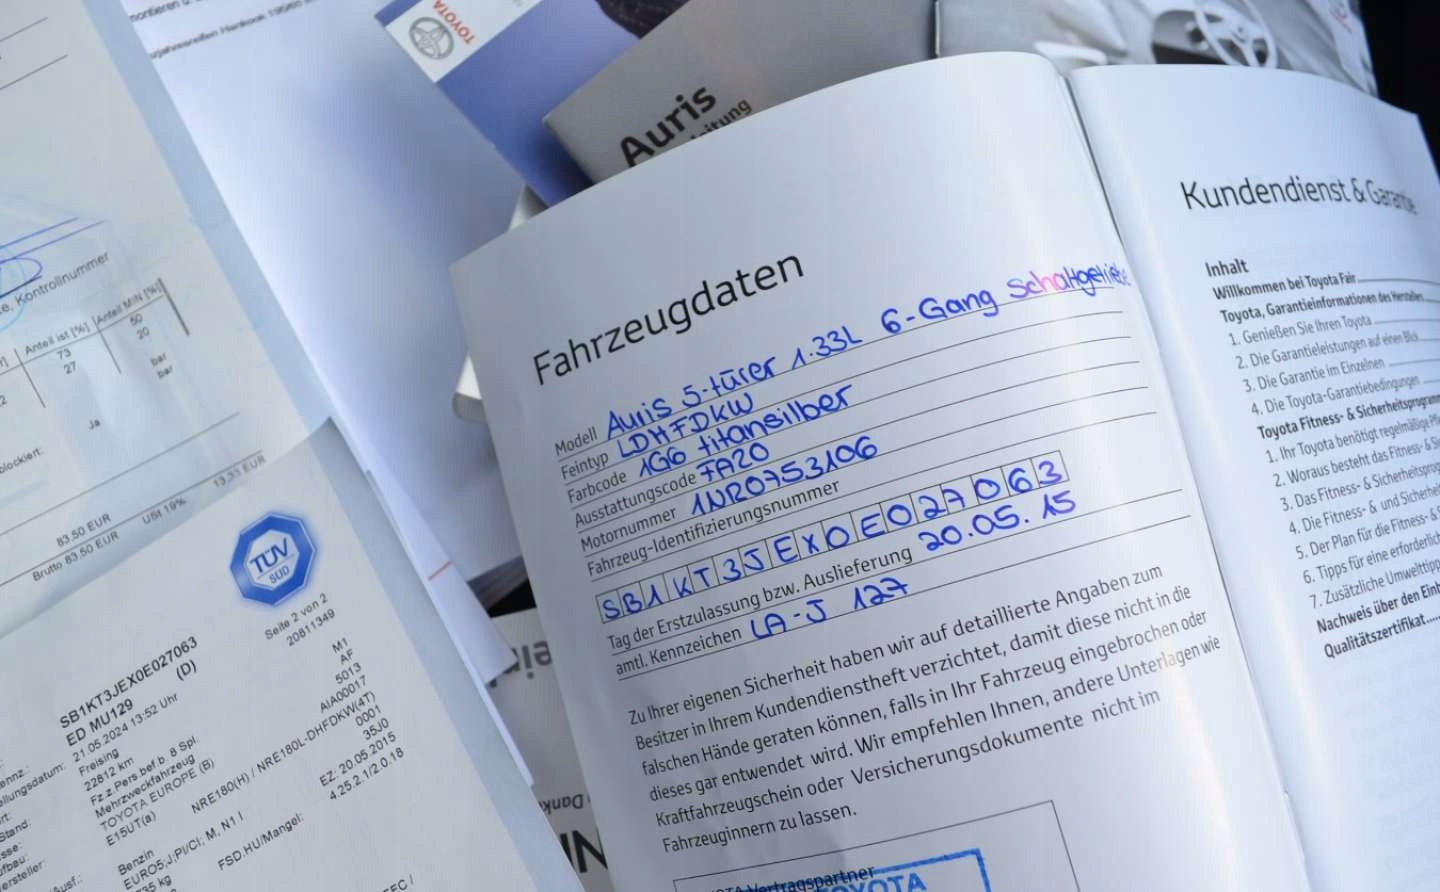 TOYOTA
Auris
Fahrzeugdaten
Modell Auris 5-türer 1.33L 6-Gang Schaltgetriebe
Feintyp LDHFDKW
Farbcode 1G6 titansilber
Ausstattungscode FA20
Motornummer 1NR0753106
Fahrzeug-Identifizierungsnummer
SB1KT3JEX0E027063
Tag der Erstzulassung bzw. Auslieferung 20.05.15
amtl. Kennzeichen LA-J 127
Zu Ihrer eigenen Sicherheit haben wir auf detaillierte Angaben zum
Besitzer in Ihrem Kundendienstheft verzichtet, damit diese nicht in die
falschen Hände geraten können, falls in Ihr Fahrzeug eingebrochen oder
dieses gar entwendet wird. Wir empfehlen Ihnen, andere Unterlagen wie
Kraftfahrzeugschein oder Versicherungsdokumente nicht im
Fahrzeuginnern zu lassen.
Vertragspartner
TOYOTA
Kundendienst & Garantie
Inhalt
Willkommen bei Toyota Fair
Toyota, Garantieinformationen des Herstellers
1. Genießen Sie Ihren Toyota
2. Die Garantieleistungen auf einen Blick
3. Die Garantie im Einzelnen
4. Die Toyota-Garantiebedingungen
Toyota Fitness- & Sicherheitsprogramm
1. Ihr Toyota benötigt regelmäßige
2. Woraus besteht das Fitness- &
3. Das Fitness- & Sicherheitsprog
4. Die Fitness- & und Sicherheit
5. Der Plan für die Fitness- &
6. Tipps für eine erforderlich
7. Zusätzliche Umwelttipp
Nachweis über den Einb
Qualitätszertifikat
Kontrollnummer
Anteil ist [%] Anteil MIN [%]
73 50
27 20
bar
bar
Ja
blockiert:
83,50 EUR
Brutto 83,50 EUR USt 19% 13,33 EUR
TÜV
SÜD
Seite 2 von 2
20811349
SB1KT3JEX0E027063
ED MU129 (D)
21.05.2024 13:52 Uhr
Freising
22812 km
Fz.z.Pers.bef.b. 8 Spl. M1
Mehrzweckfahrzeug AF
TOYOTA EUROPE (B) 5013
E15UT(a) NRE180(H) / NRE180L-DHFDKW(4T) AIA00017
0001
Benzin 35J0
EURO5;J;PI/CI; M, N1 I EZ: 20.05.2015
FSD.HU/Mangel: 4.25.2.1/2.0.18